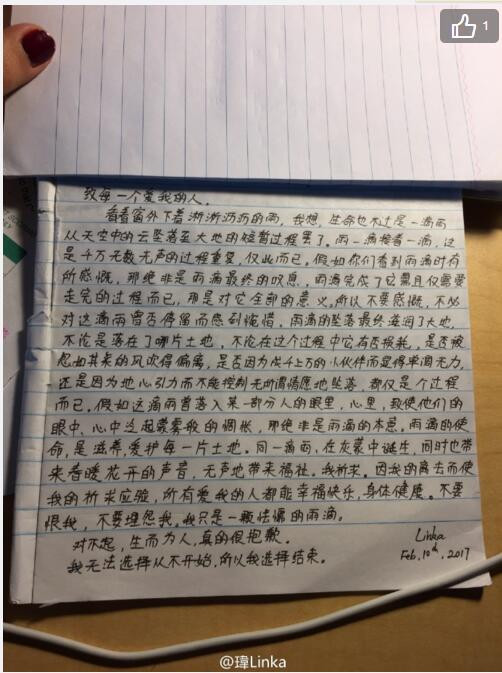 1
致每一个爱我的人.
看着窗外下着淅淅沥沥的雨,我想,生命也不过是一滴雨
从天空中的云坠落至大地的短暂过程罢了。雨一滴接着一滴,这
是千万无数无声的过程重复,仅此而已,假如你们看到雨滴时有
所感慨,那绝非是雨滴最终的叹息,雨滴完成了它需且仅需要
走完的过程而已,那是对它全部的意义。所以不要感慨,不必
对这滴雨曾否停留而感到惋惜,雨滴的坠落最终滋润了大地,
不论是落在了哪片土地,不论在这个过程中它有否损耗,是否被
忽如其来的风吹得偏离,是否因为成千上万的小伙伴而显得单调无力,
还是因为地心引力而不能控制无所谓情愿地坠落,都仅是个过程
而已,假如这滴雨曾落入某一部分人的眼里,心里,致使他们的
眼中、心中泛起蒙蒙我的惆怅,那绝非是雨滴的本意。雨滴的使
命,是滋养,爱护每一片土地。同一滴雨,在灰蒙中诞生,同时也带
来春暖花开的声音,无声地带来福祉。我祈求。因我的离去而使
我的祈求应验,所有爱我的人都能幸福快乐,身体健康。不要
恨我,不要埋怨我。我只是一颗怯懦的雨滴。
对不起,生而为人,真的很抱歉。
我无法选择从不开始,所以我选择结束。
Linka
Feb, 10th, 2017
@瑋Linka